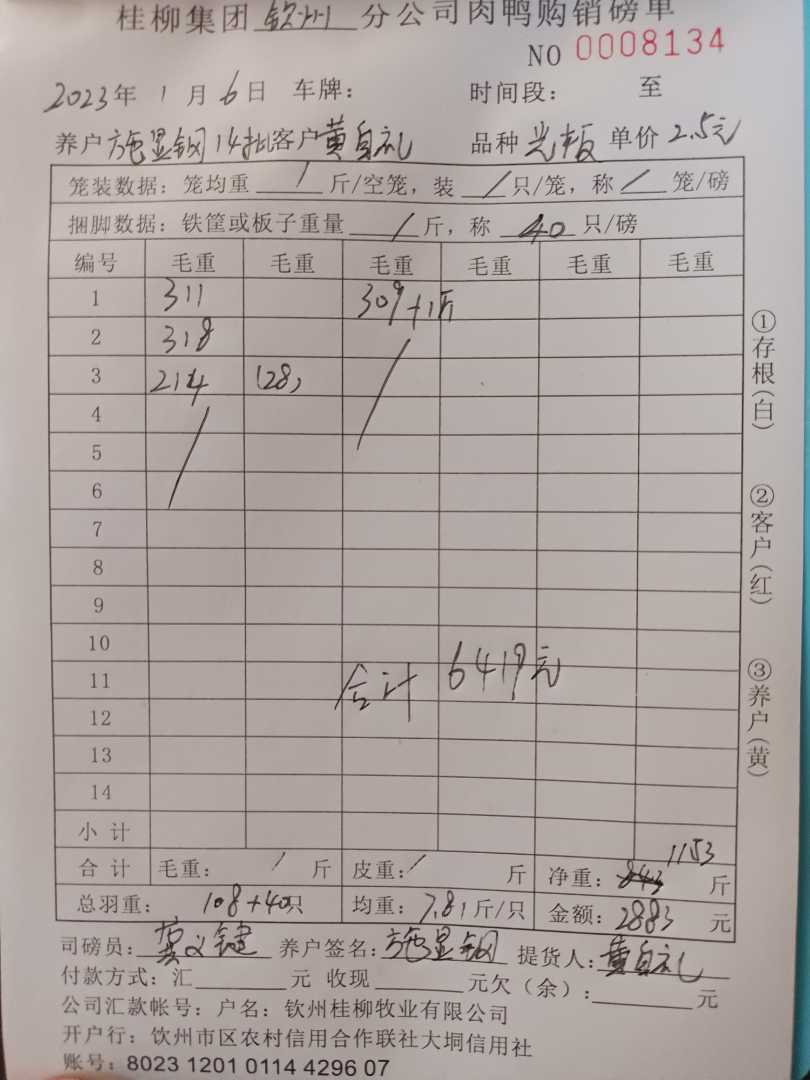 桂柳集团 钦州 分公司肉鸭购销磅单
NO 0008134
2023年 1 月 6 日 车牌： 时间段： 至
养户 施显钢 14批 客户 黄自礼 品种 光板 单价 2.5元
笼装数据：笼均重 / 斤/空笼，装 / 只/笼，称 / 笼/磅
捆脚数据：铁筐或板子重量 / 斤，称 40 只/磅
编号 毛重 毛重 毛重 毛重 毛重 毛重
1 311 309+1斤
2 318
3 214 (28)
4
5
6
7
8
9
10
11 合计 6419元
12
13
14
小计
合计 毛重： / 斤 皮重：/ 斤 净重：843 1153 斤
总羽重： 108+40只 均重：7.81斤/只 金额：2883 元
司磅员： 义键 养户签名：施显钢 提货人：黄自礼
付款方式：汇 元 收现 元欠（余）： 元
公司汇款帐号：户名：钦州桂柳牧业有限公司
开户行：饮州市区农村信用合作联社大垌信用社
账号：8023 1201 0114 4296 07
①存根（白）
②客户（红）
③养户（黄）